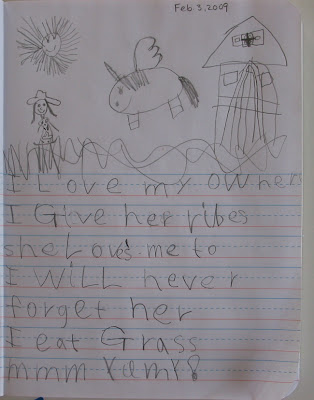 Feb. 3, 2009
I Love my owner
I Give her ribes
she Loves me to
I WiLL never
forget her
I eat Grass
mmm Yumy!